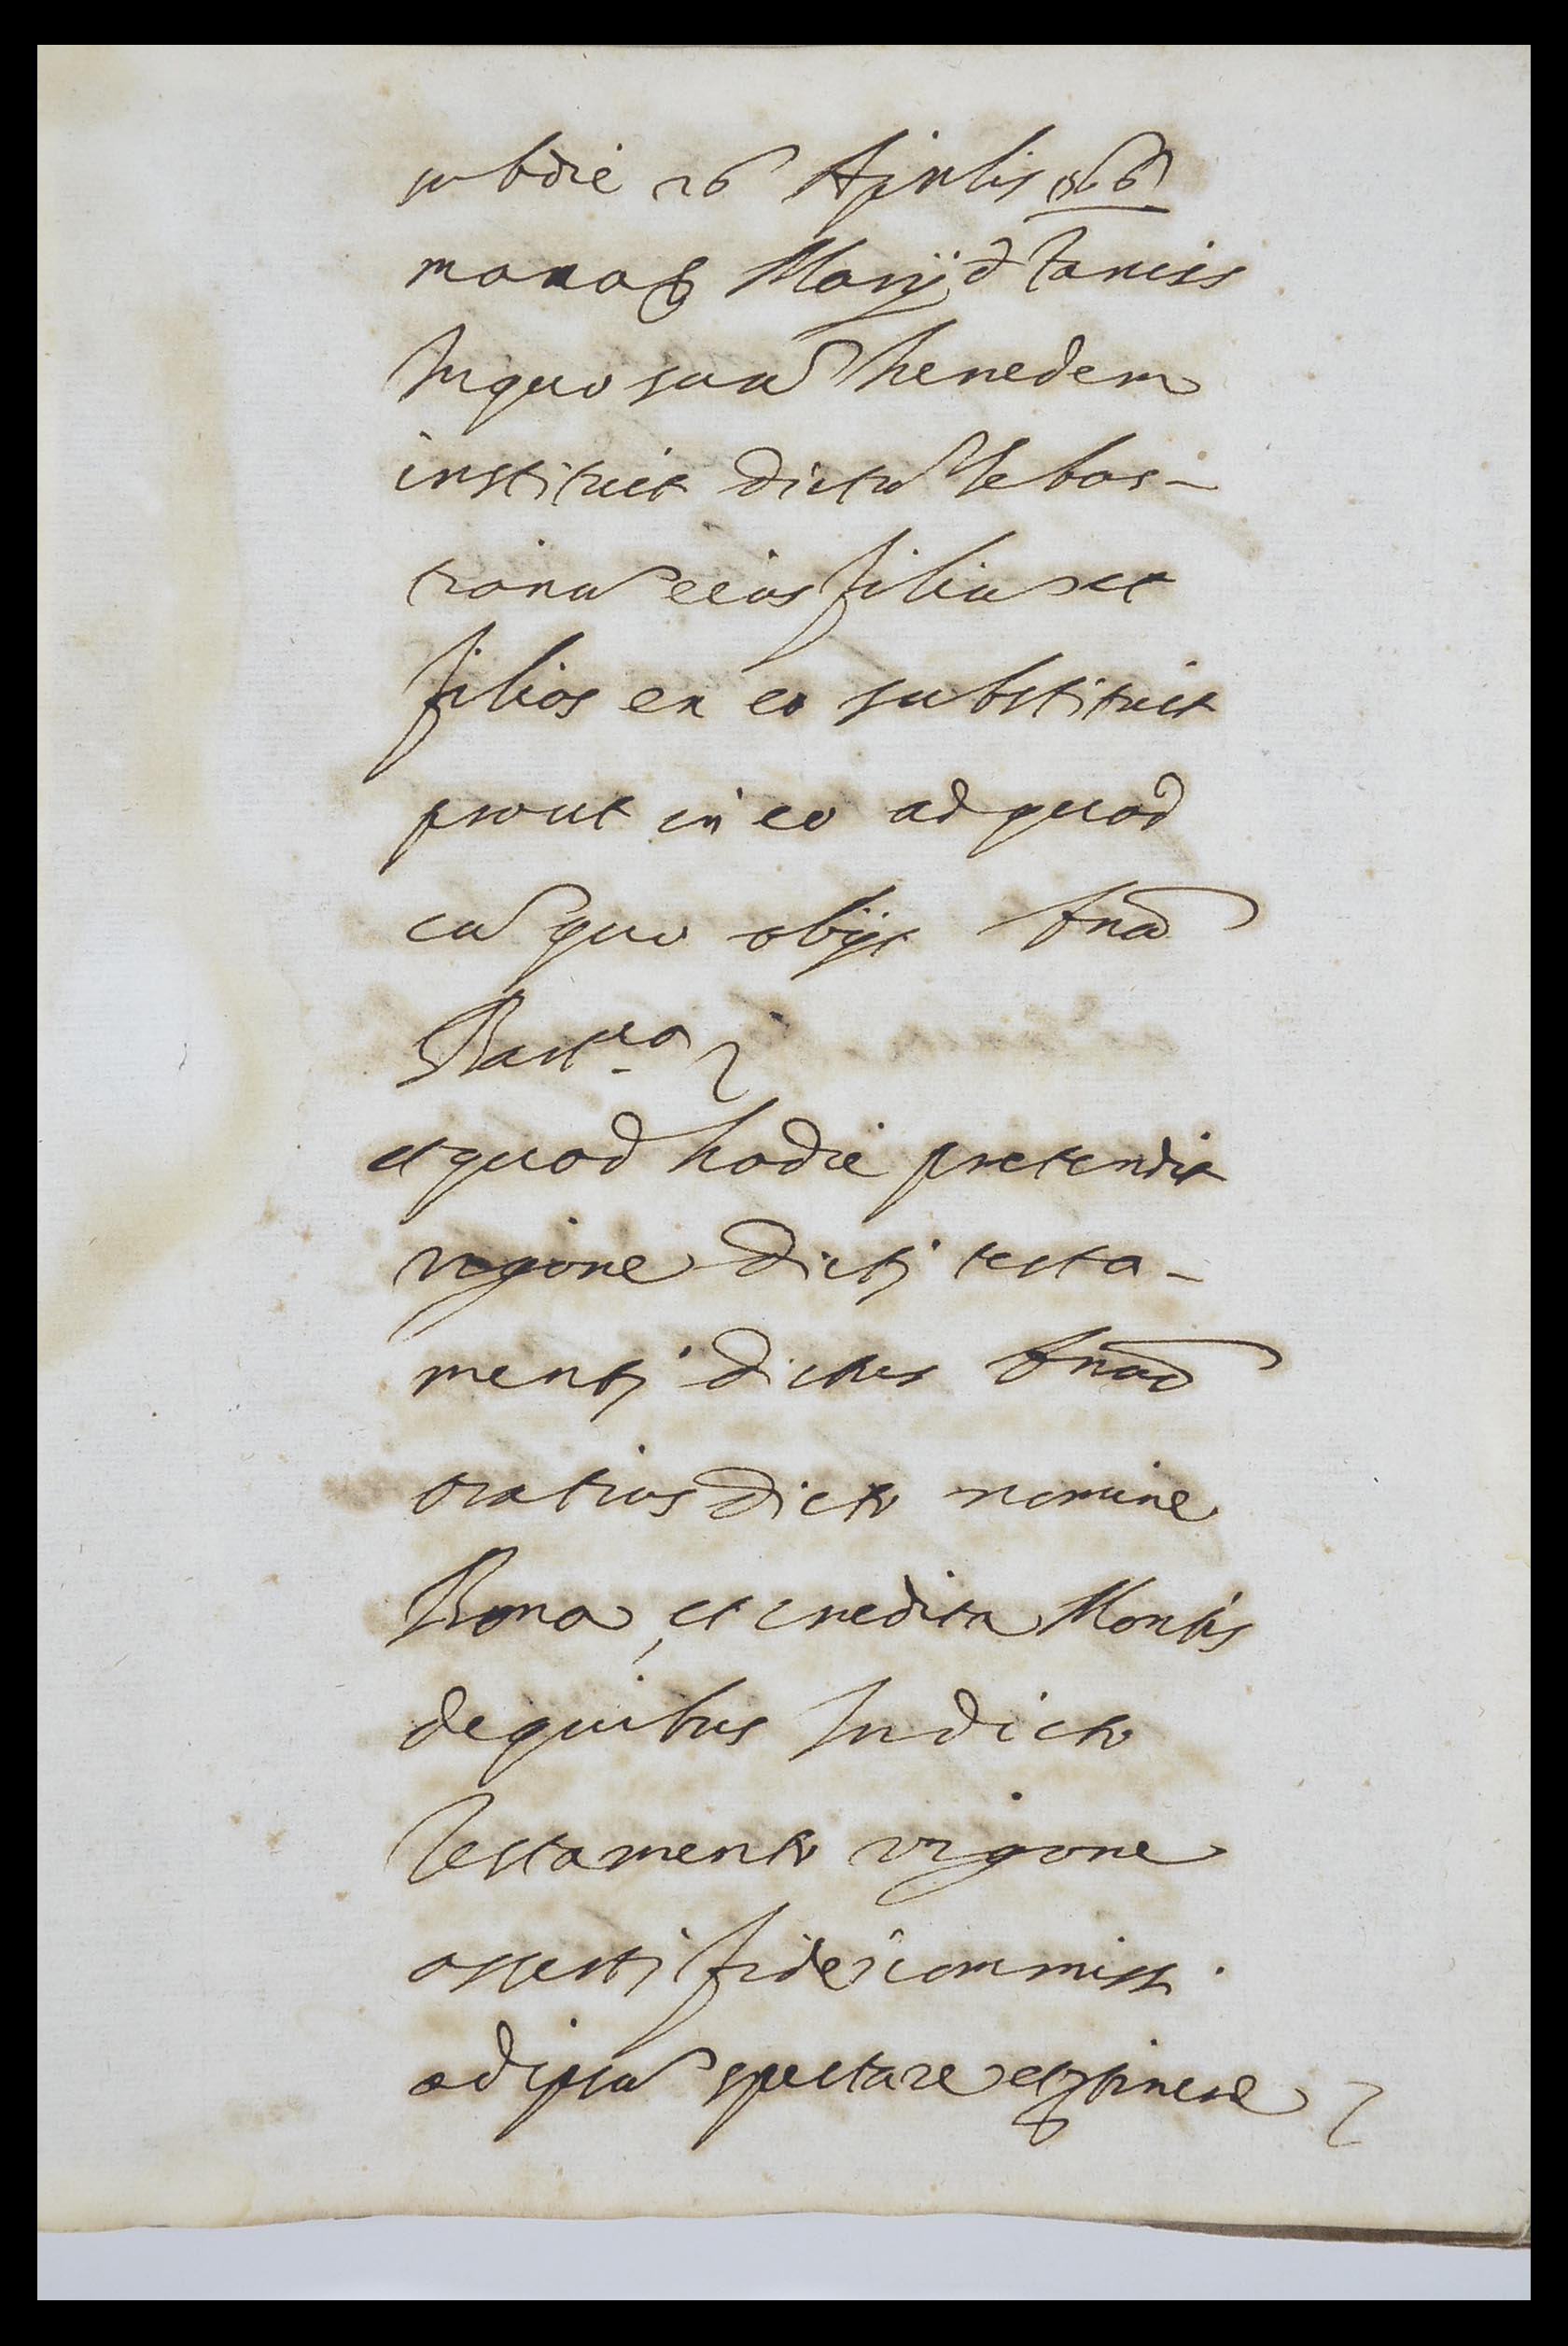 subdie 26 Aprilis 1566
manag Marij d Taneis
In quo suũ heredem
instituit dictũ Sebas-
tianũ eius filiũ et
filios ex eo substituit
prout in eo ad quod
cũ quo obijt
et quod hodie pretendit
vigore dictj testa-
mentj dictus
oratius dicto nomine
Bona, et credita Montis
de quibus In dicto
Testamento vigore
assertj fideicommissi
ad ipsũ spectare et ptinere